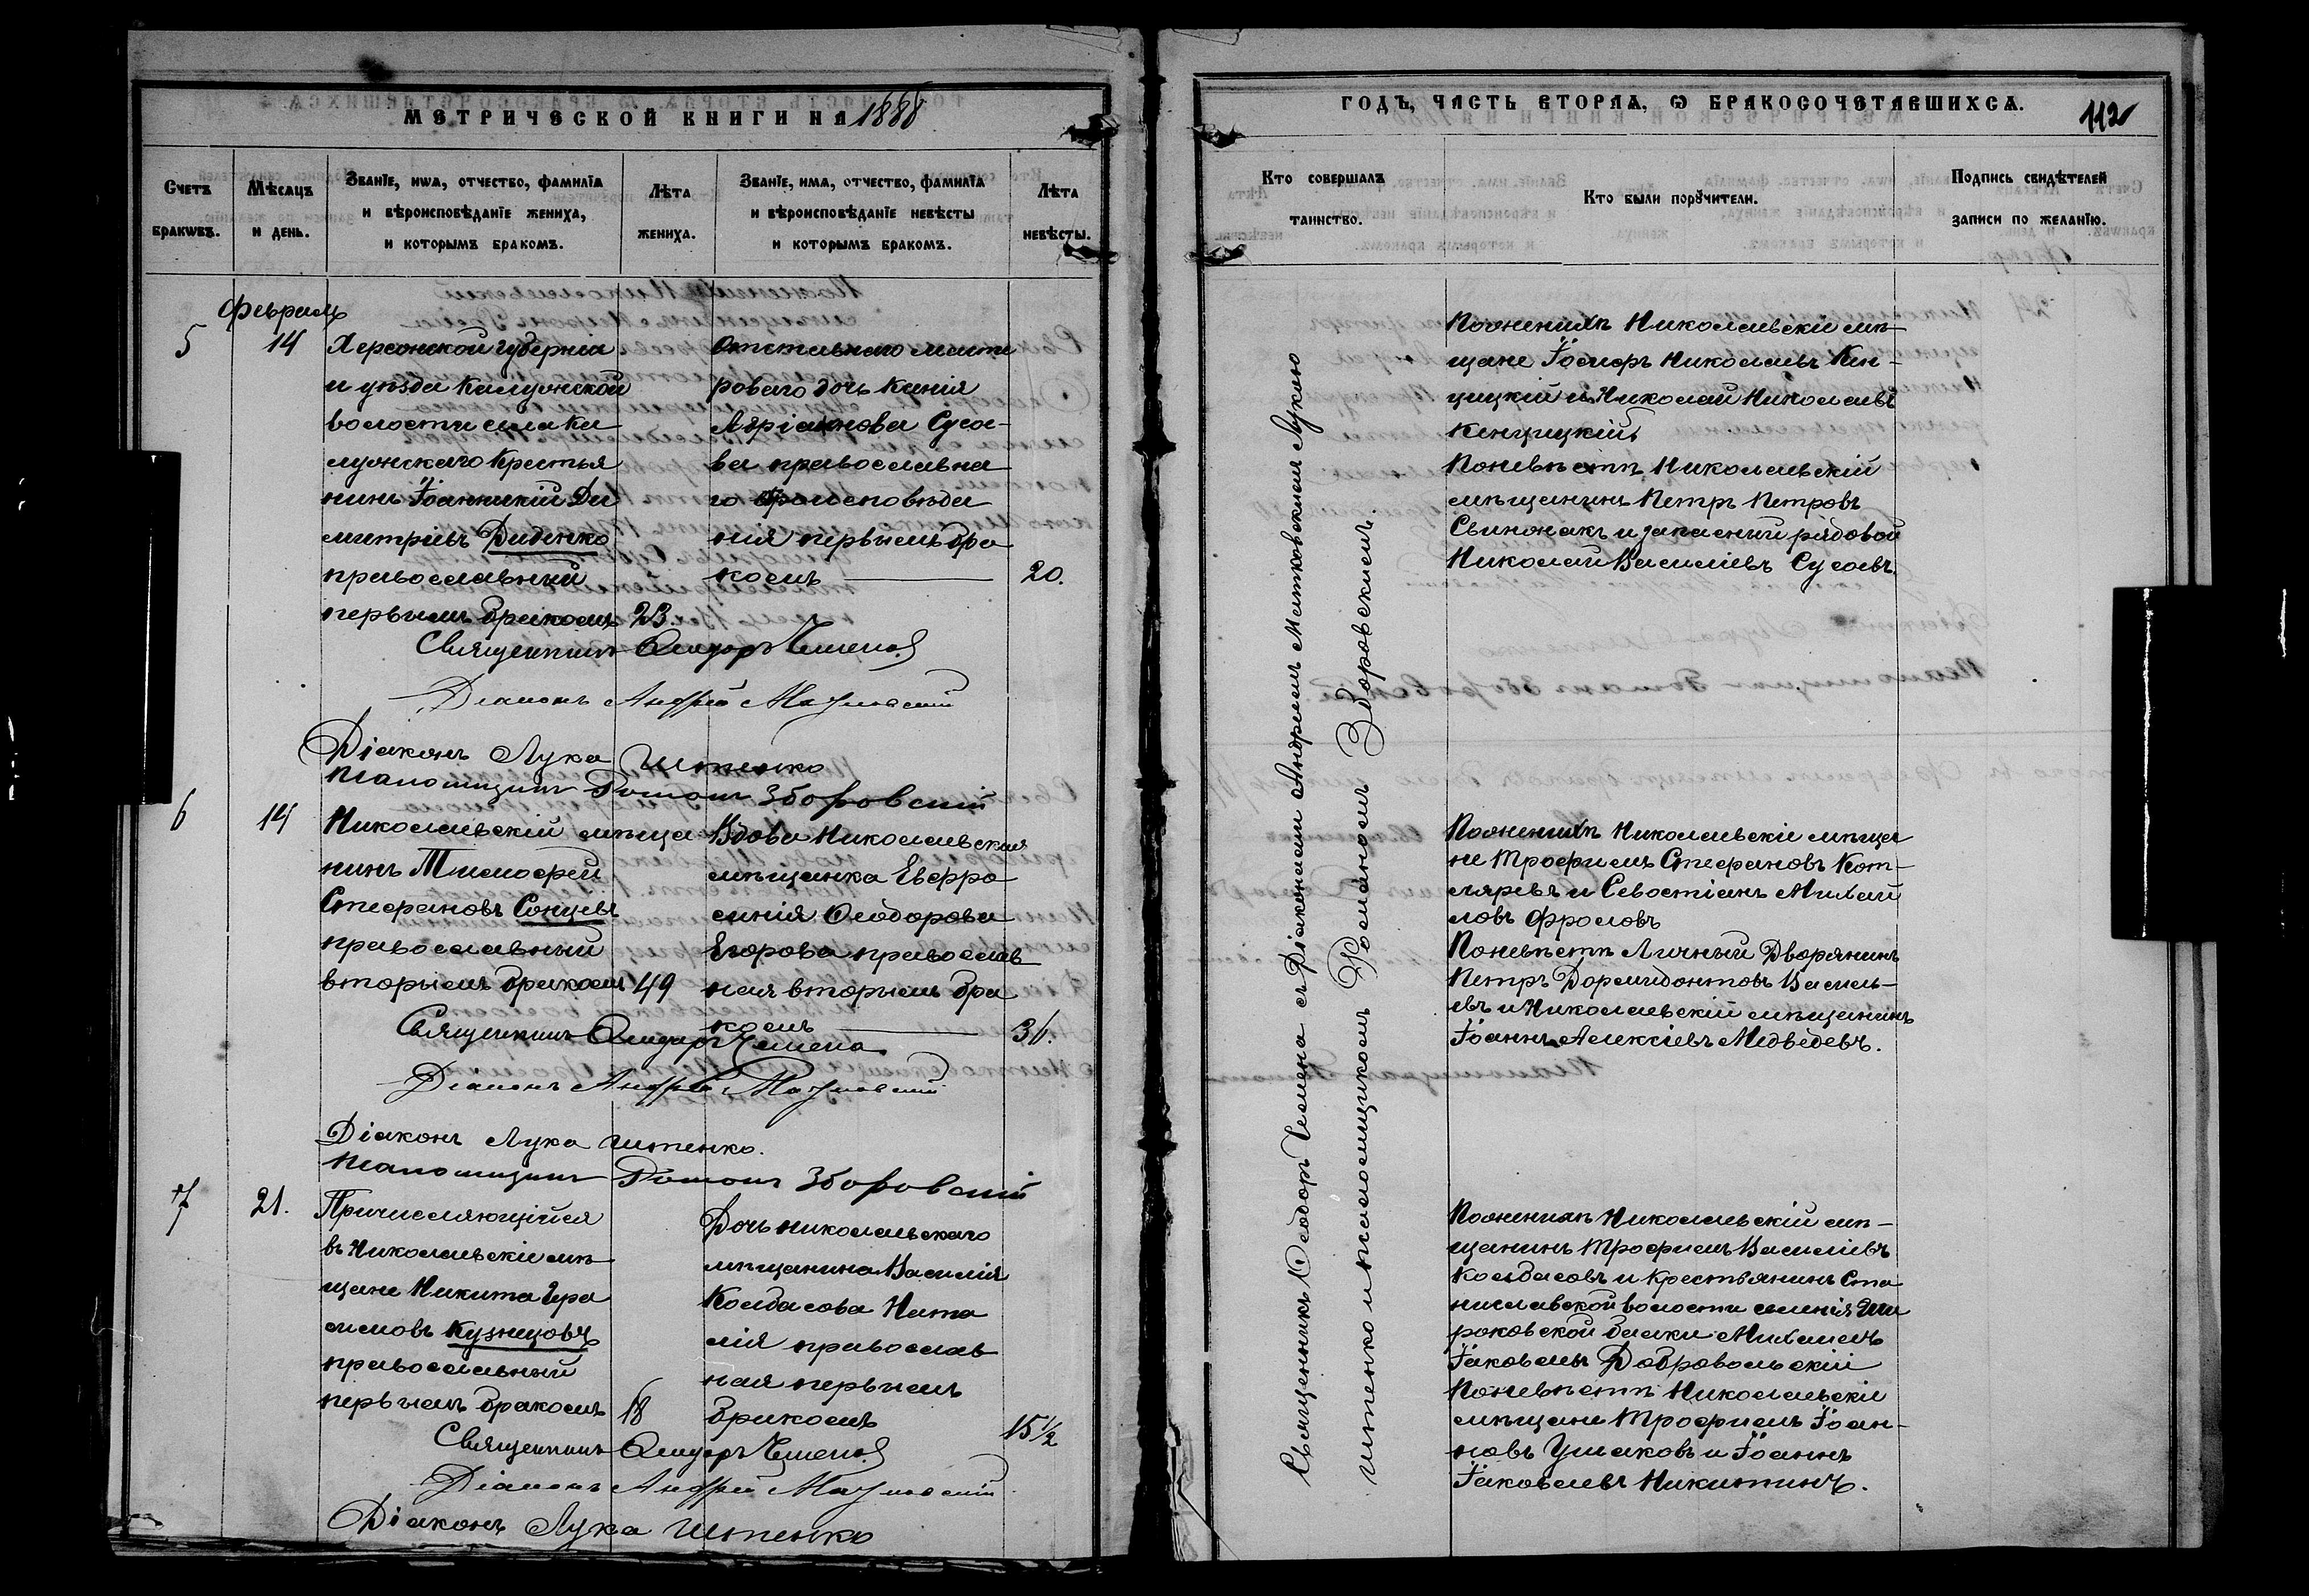 МЕТРИЧЕСКОЙ КНИГИ НА 1888
Счетъ браковъ.
Мѣсяцъ и день.
Званїе, имя, отчество, фамилїя
и вѣроисповѣданїе жениха,
и которымъ бракомъ.
Лѣта
жениха.
Званїе, имя, отчество, фамилїя
и вѣроисповѣданїе невѣсты
и которымъ бракомъ.
Лѣта
невѣсты.
Февраль
5
14
Херсонской губерніи
и уѣзда Калужской
волости села Ка
лужскаго Крестья
нинъ Іоанникій Ди
митріевъ Диденко
православный
первымъ бракомъ
23.
Отставнаго масте
роваго дочь Ксенія
Адріанова Сусо-
ва православна
го вѣроисповѣда
нія первымъ бра
комъ
20.
Священникъ Ѳеодоръ Чемена
Діаконъ Андрей Матковскій
Діаконъ Лука Штенко
Псаломщикъ Романъ Зборовскій
6
14
Николаевскій мѣща
нинъ Тимофей
Стефановъ Сонцевъ
православный
вторымъ бракомъ
49
Вдова Николаевская
мѣщанка Евфро
синія Ѳеодорова
Егорова православ
ная вторымъ бра
комъ
36.
Священникъ Ѳеодоръ Чемена
Діаконъ Андрей Матковскій
Діаконъ Лука Штенко.
Псаломщикъ Романъ Зборовскій
7
21.
Причисляющійся
въ Николаевскіе мѣ
щане Никита Гера
симовъ Кузнецовъ
православный
первымъ бракомъ
18
Дочь николаевскаго
мѣщанина Василія
Колдасова Ната
лія православ
ная первымъ
бракомъ
15 1/2
Священникъ Ѳеодоръ Чемена
Діаконъ Андрей Матковскій
Діаконъ Лука Штенко
ГОДЪ, ЧАСТЬ ВТОРАЯ, Ѡ БРАКОСОЧЕТАВШИХСЯ.
112
Кто совершалъ
таинство.
Кто были порꙋчители.
Подпись свидѣтелей
записи по желанїю.
Священникъ Ѳеодоръ Чемена съ Діаконами Андреемъ Матковскимъ Лукою
Штенко и псаломщикомъ Романомъ Зборовскимъ.
По женихѣ Николаевскіе мѣ-
щане Іосифъ Николаевъ Кен-
цицкій и Николай Николаевъ
Кенцицкій,
По невѣстѣ Николаевскій
мѣщанинъ Петръ Петровъ
Свинонакъ и запасный рядовой
Николай Василіевъ Сусовъ.
По женихѣ Николаевскіе мѣща
не Трофимъ Стефановъ Кот-
ляревъ и Севостіанъ Михай
ловъ Фроловъ
По невѣстѣ Личный Дворянинъ
Петръ Дормидонтовъ Василь-
евъ и Николаевскій мѣщанинъ
Іоаннъ Алексіевъ Медведевъ.
По женихѣ Николаевскій мѣ-
щанинъ Трофимъ Василіевъ
Колдасовъ и Крестьянинъ Ста
ниславской волости селенія Ши
роковской балки Михаилъ
Іаковлевъ Добровольскій
По невѣстѣ Николаевскіе
мѣщане Трофимъ Іоан-
новъ Ушаковъ и Іоаннъ
Іаковлевъ Никитинъ.